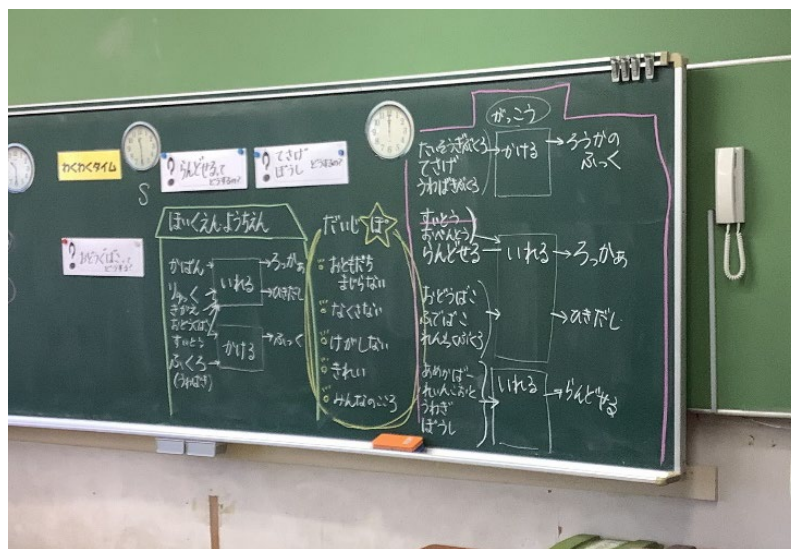 わくわくタイム
? らんどせるって
どうするの?
? てさげ
ぼうし
どうするの?
? おどうぐばこって
どうする?
S
ほいくえん・ようちえん
かばん
りゅっく
きがえ
おどうぐばこ
すいとう
ふくろ
(うわばき)
いれる
→ろっかぁ
→ひきだし
かける
→ふっく
だいじ ぽ
おともだち
まじらない
なくさない
けがしない
きれい
みんなのこころ
がっこう
たいそうぎぶくろ
てさげ
うわばきぶくろ
かける
→ろうかの
ふっく
すいとう
おべんとう
らんどせる
いれる
→ろっかぁ
おどうばこ
ふでばこ
→ひきだし
あめかばー
れいんこおと
うわぎ
ぼうし
いれる
→らんどせる